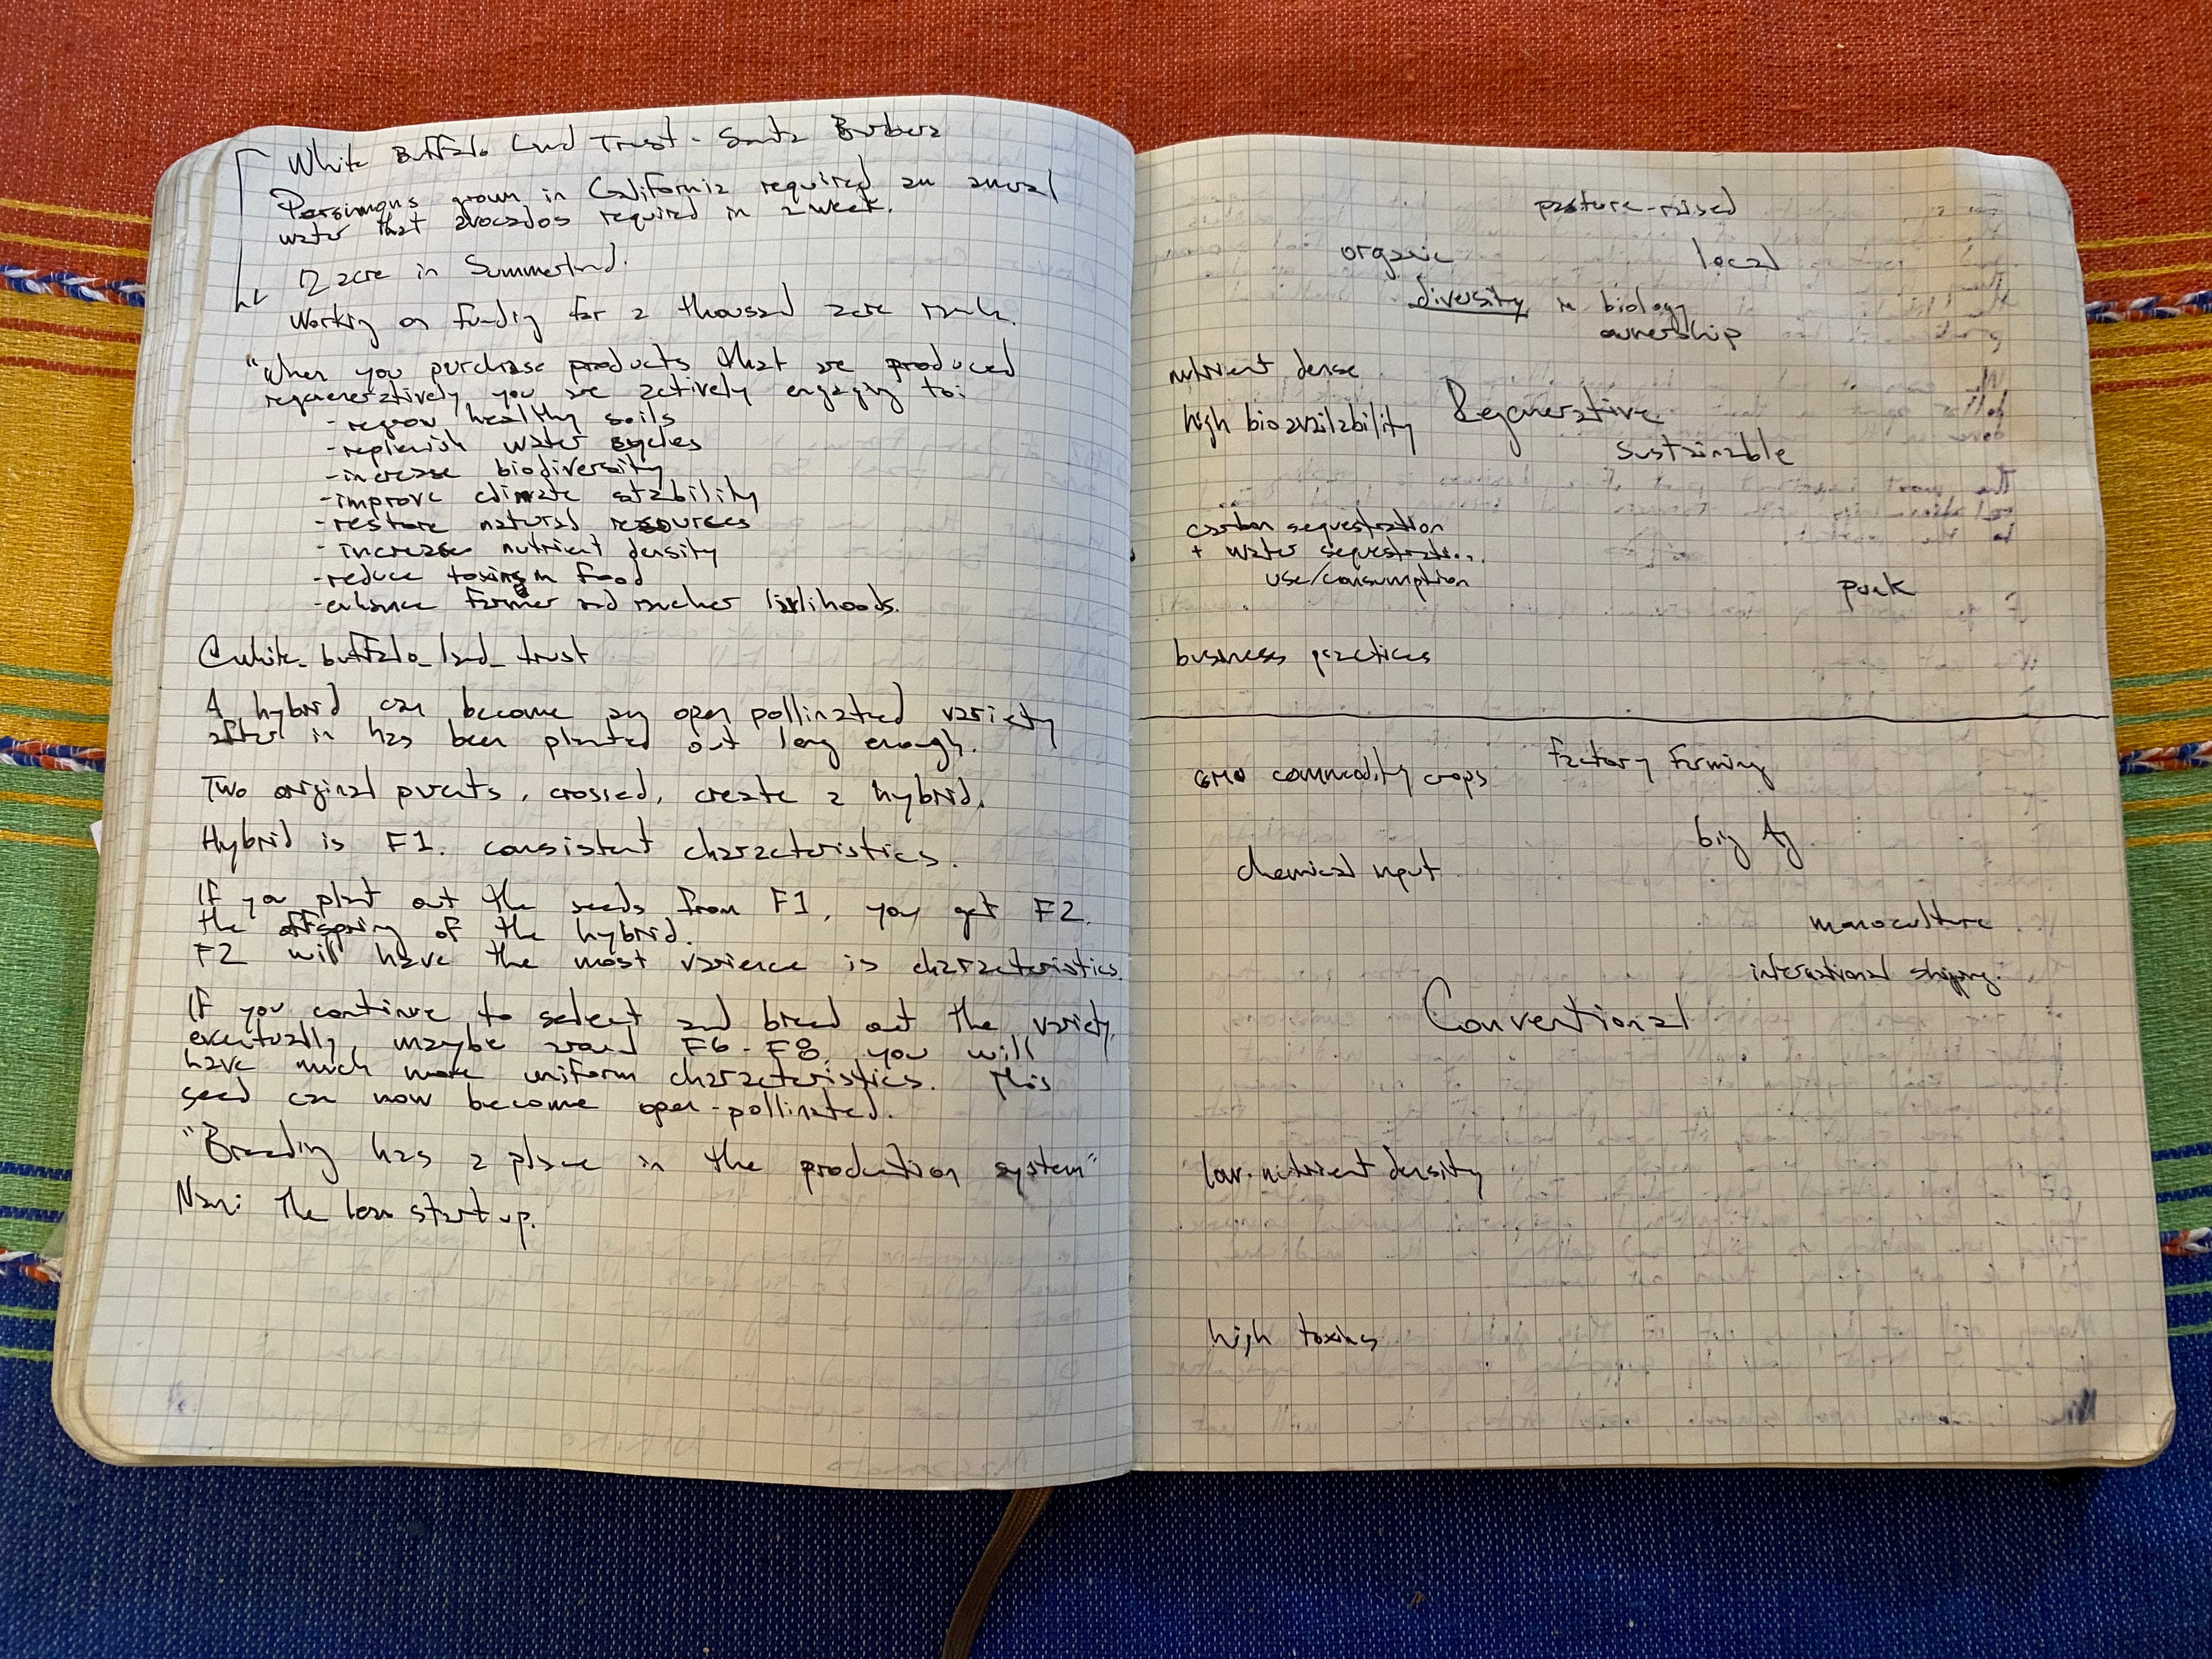 White Buffalo Land Trust - Santa Barbara
Persimmons grown in California required an anural
water that avocados required in a week.
12 acre in Summerland.
Working on funding for a thousand acre ranch.
"When you purchase products that are produced
regeneratively you are actively engaging to:
- regrow healthy soils
- replenish water cycles
- increase biodiversity
- improve climate stability
- restore natural resources
- increase nutrient density
- reduce toxins in food
- enhance farmer and rancher livlihoods.
@white_buffalo_land_trust
A hybrid can become an open pollinated variety
after in has been planted out long enough.
Two original parents, crossed, create a hybrid.
Hybrid is F1. consistent characteristics.
If you plant out the seeds from F1, you get F2.
the offspring of the hybrid.
F2 will have the most varience is characteristics.
If you continue to select and breed out the variety,
eventually, maybe around F6-F8, you will
have much more uniform characteristics. This
seed can now become open-pollinated.
"Breeding has a place in the production system"
Nari: The lean start up.
pasture-raised
organic local
diversity in biology
ownership
nutrient dense
high bioavailability Regenerative
sustainable
carbon sequestration
+ water sequestrati...
use/consumption
business practices
GMO commodity crops factory farming
big Ag
chemical input
monoculture
international shipping.
Conventional
low-nutrient density
high toxins